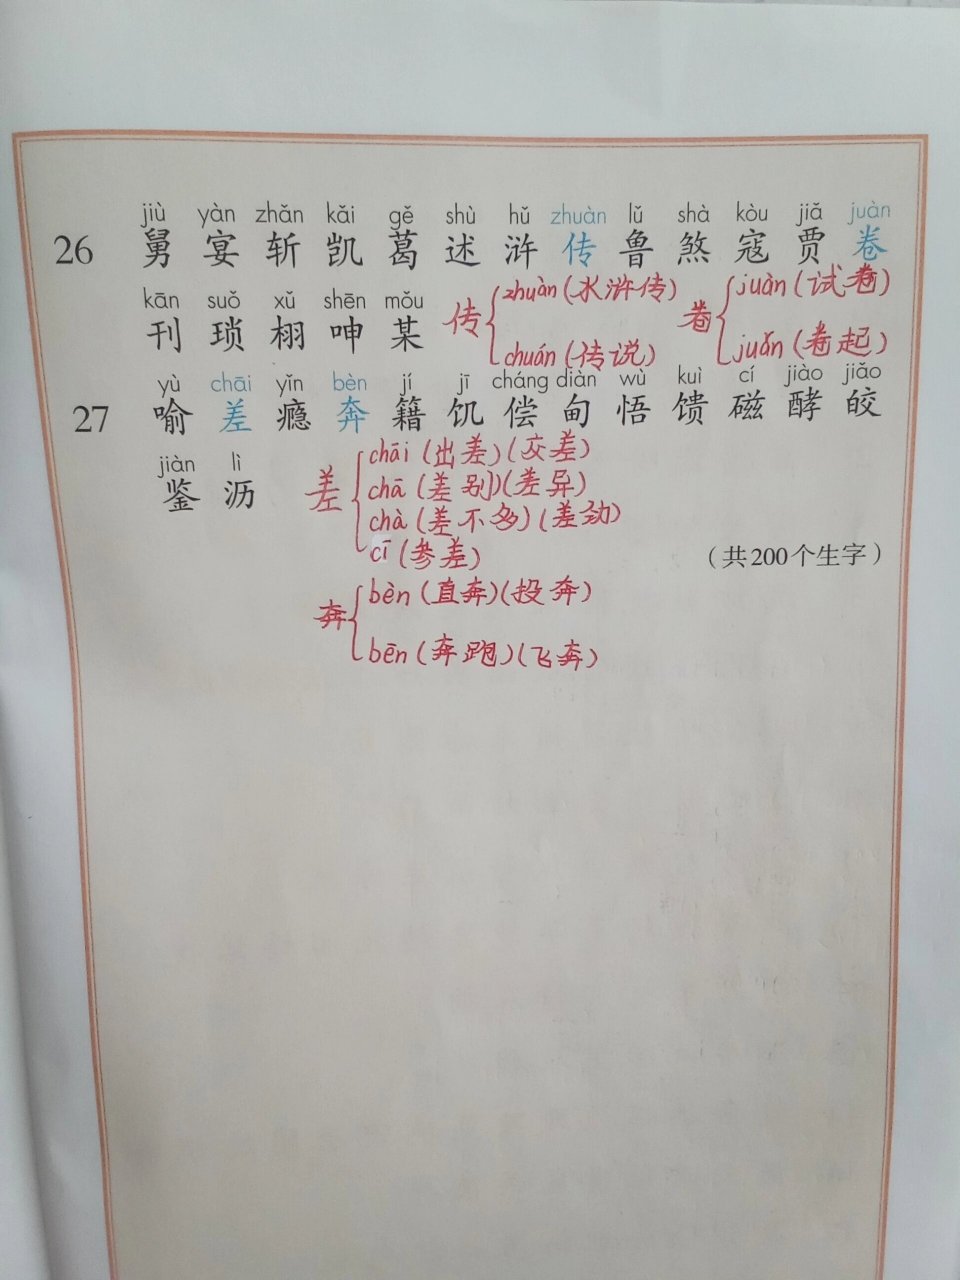 jiù yàn zhǎn kǎi gě shù hǔ zhuàn lǔ shà kòu jiǎ juàn
26 舅 宴 斩 凯 葛 述 浒 传 鲁 煞 寇 贾 卷
kān suǒ xǔ shēn mǒu
刊 琐 栩 呻 某
传 zhuàn (水浒传)
chuán (传说)
卷 juàn (试卷)
juǎn (卷起)
yù chāi yǐn bèn jí jī cháng diàn wù kuì cí jiào jiǎo
27 喻 差 瘾 奔 籍 饥 偿 甸 悟 馈 磁 酵 皎
jiàn lì
鉴 沥
差 chāi (出差)(交差)
chā (差别)(差异)
chà (差不多)(差劲)
cī (参差)
(共200个生字)
奔 bèn (直奔)(投奔)
bēn (奔跑)(飞奔)